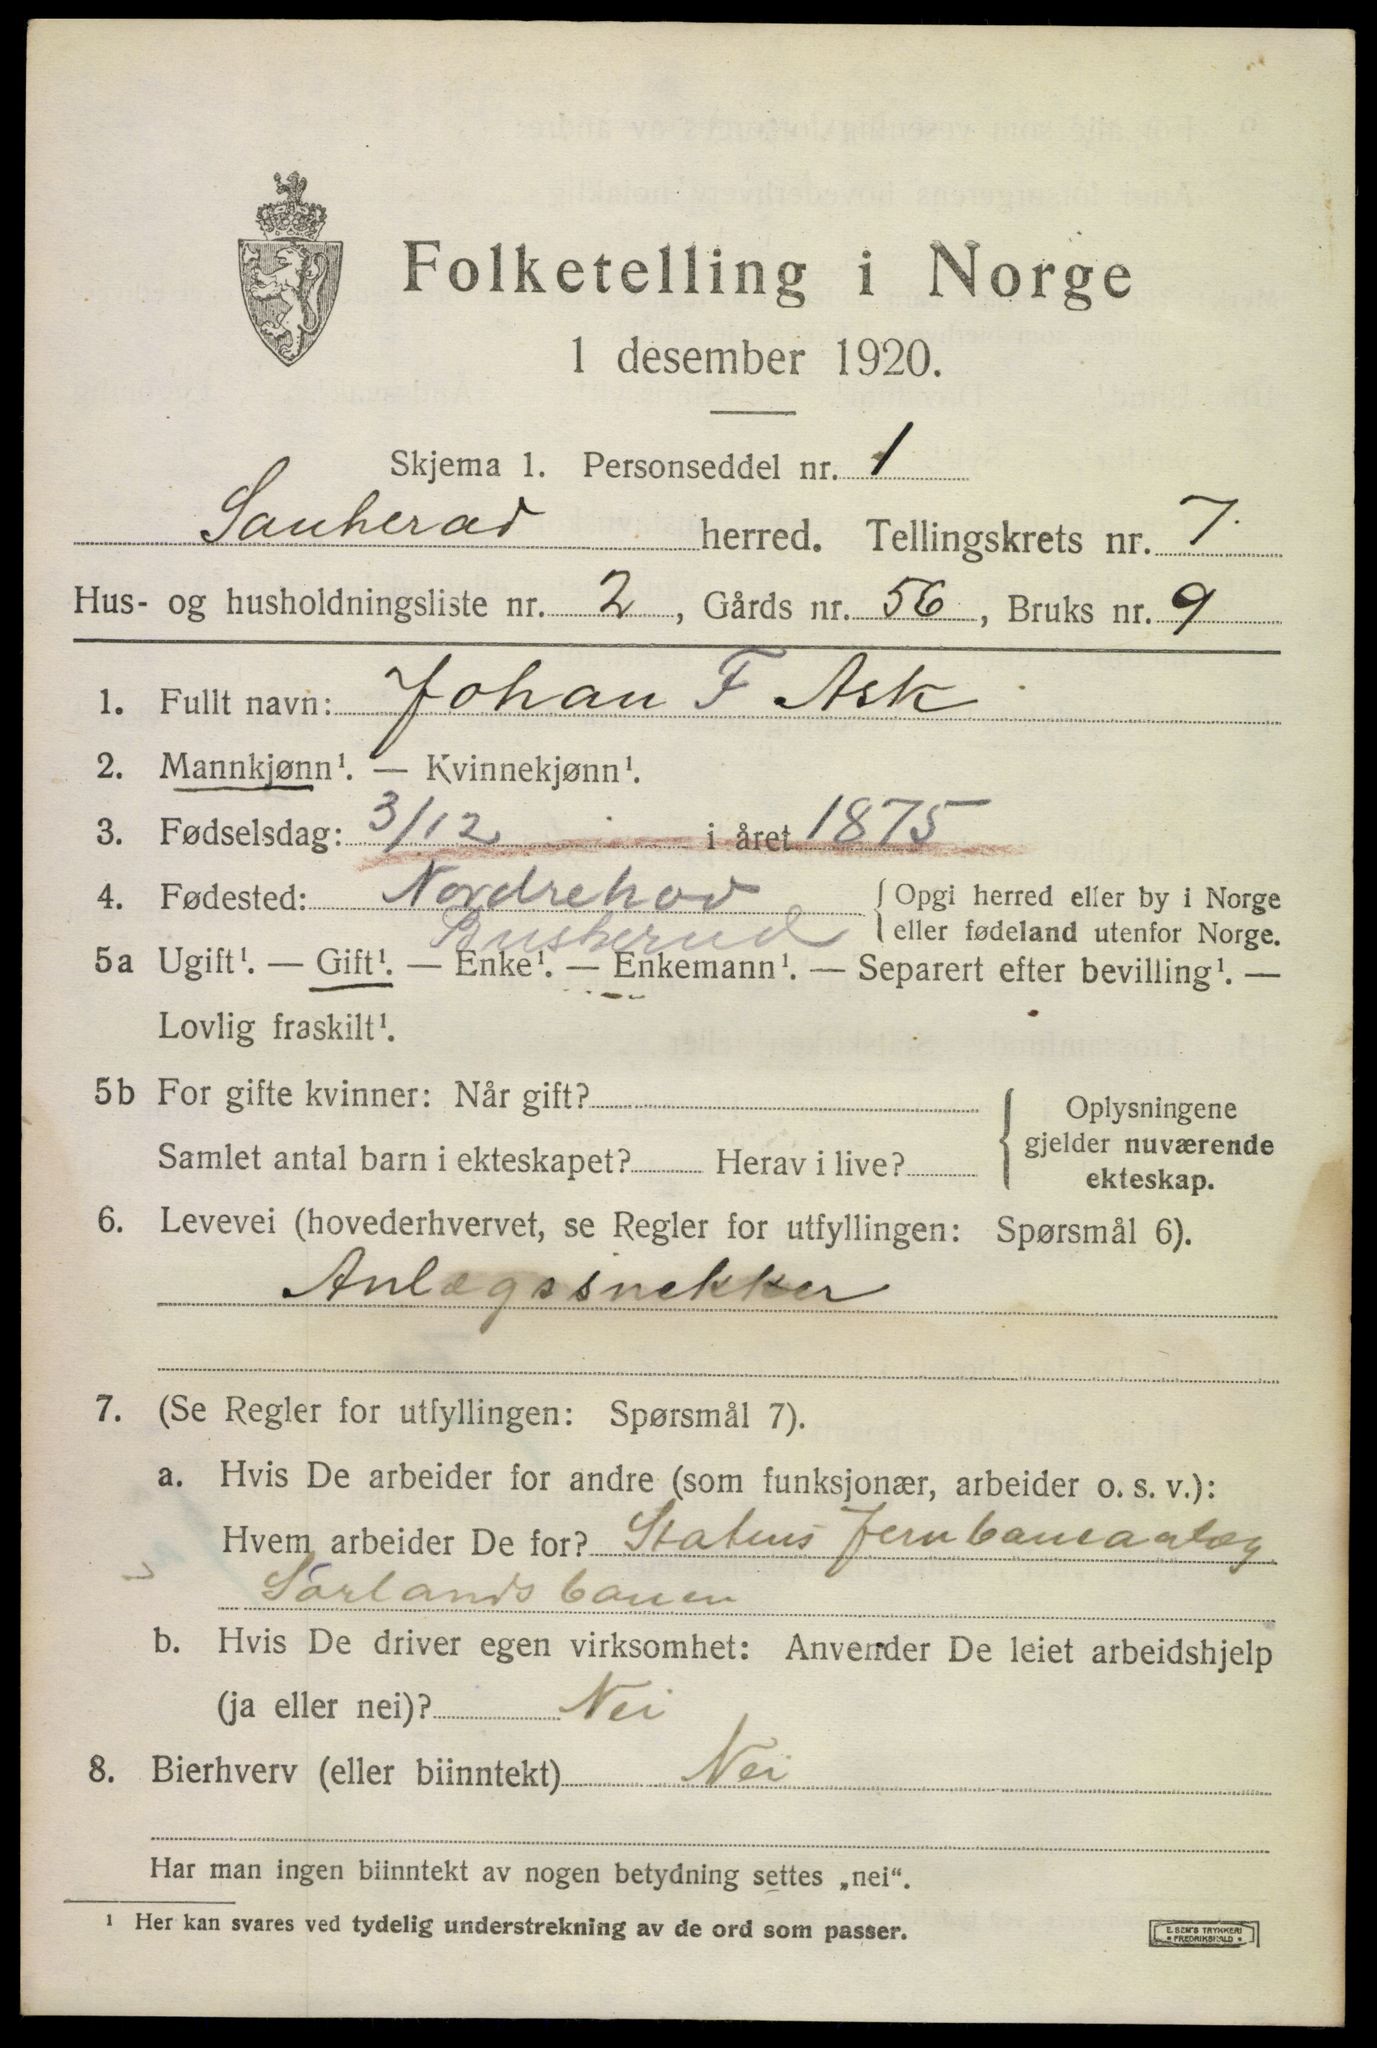 Folketelling i Norge
1 desember 1920.
Skjema 1. Personseddel nr. 1
Sauherad herred. Tellingskrets nr. 7.
Hus- og husholdningsliste nr. 2, Gårds nr. 56, Bruks nr. 9
1. Fullt navn: Johan F Ask
2. Mannkjønn¹. — Kvinnekjønn¹.
3. Fødselsdag: 3/12 i året 1875
4. Fødested: Nordrehov { Opgi herred eller by i Norge
Buskerud eller fødeland utenfor Norge.
5a Ugift¹. — Gift¹. — Enke¹. — Enkemann¹. — Separert efter bevilling¹. —
Lovlig fraskilt¹.
5b For gifte kvinner: Når gift? { Oplysningene
gjelder nuværende
Samlet antal barn i ekteskapet? Herav i live?
ekteskap.
6. Levevei (hovederhvervet, se Regler for utfyllingen: Spørsmål 6).
Anlægssnekker
7. (Se Regler for utfyllingen: Spørsmål 7).
a. Hvis De arbeider for andre (som funksjonær, arbeider o. s. v.):
Hvem arbeider De for? Statens Jernbaneanlæg
Sørlandsbanen
b. Hvis De driver egen virksomhet: Anvender De leiet arbeidshjelp
(ja eller nei)? Nei
8. Bierhverv (eller biinntekt) Nei
Har man ingen biinntekt av nogen betydning settes „nei“.
¹ Her kan svares ved tydelig understrekning av de ord som passer.
E. SEM'S TRYKKERI
• FREDRIKSHALD •